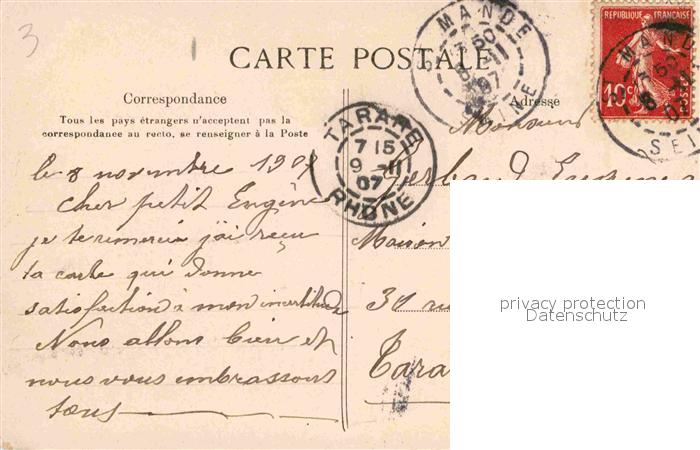 3
CARTE POSTALE
Correspondance
Tous les pays étrangers n'acceptent pas la
correspondance au recto, se renseigner à la Poste
le 8 novembre 1907
Cher petit Eugène
je te remercie j'ai reçu
ta carte qui donne
satisfaction à mon incertitude
Nous allons bien et
nous vous embrassons
tous
TARARE
7 15
9 -11
07
RHONE
MANDE
50
-11
07
SEINE
REPUBLIQUE FRANÇAISE
10c
MAND
50
8
SEI
Adresse
Monsieur
Eugène
Maison
31 ru
Tara
privacy protection
Datenschutz